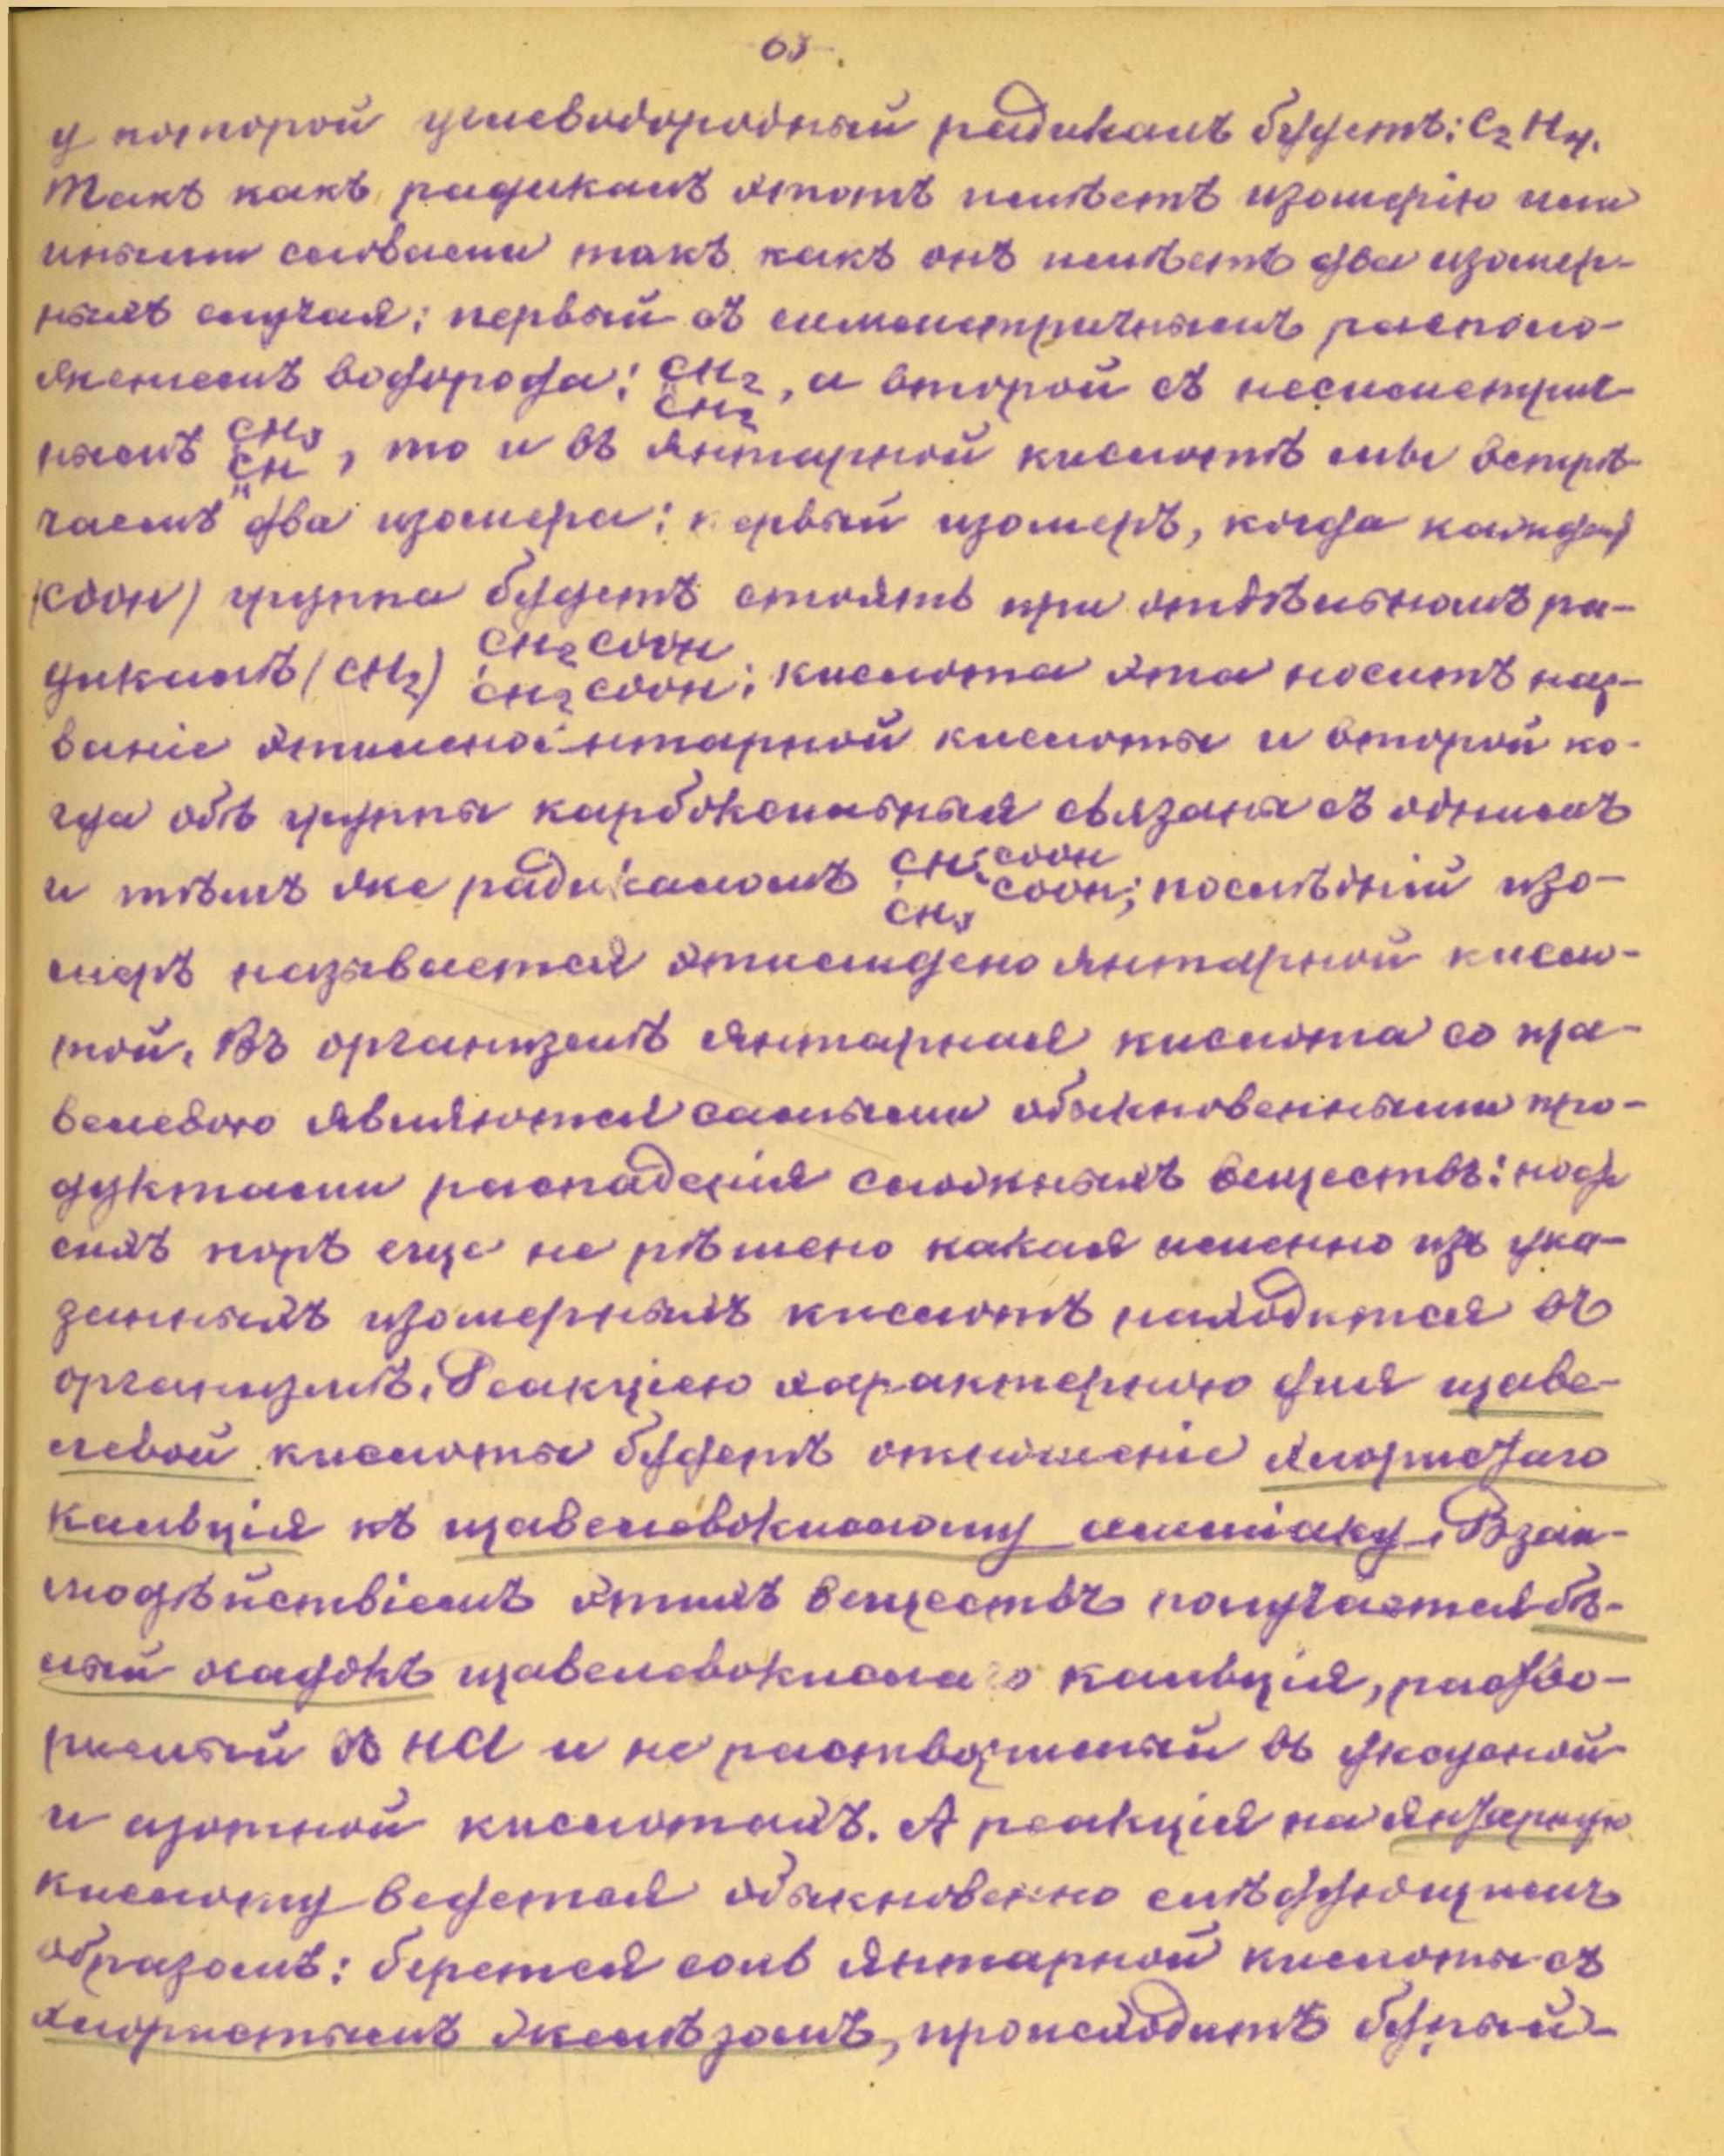 63.
у которой углеводородный радикалъ будетъ: C₂H₄.
Такъ какъ радикалъ этотъ имѣетъ изомерію или
иными словами такъ какъ онъ имѣетъ два изомер-
ныхъ случая: первый съ симметричнымъ располо-
женіемъ водорода: CH₂ CH₂, а второй съ несиметрич-
нымъ CH₃ CH, то и въ янтарной кислотѣ мы встрѣ-
чаемъ два изомера: первый изомеръ, когда каждая
(COOH) группа будетъ стоять при отдѣльномъ ра-
дикалѣ (CH₂) CH₂COOH CH₂COOH; кислота эта носитъ наз-
ваніе этиленоянтарной кислоты и второй ко-
гда обѣ группы карбоксильныя связаны съ однимъ
и тѣмъ же радикаломъ CH COOH COOH CH₃; послѣдній изо-
меръ называется этилиденоянтарной кисло-
той. Въ организмѣ янтарная кислота со ща-
велевою являются самыми обыкновенными про-
дуктами распаденія сложныхъ веществъ: до
сихъ поръ еще не рѣшено какая именно изъ ука-
занныхъ изомерныхъ кислотъ находится въ
организмѣ. Реакціею характерною для щаве-
левой кислоты будетъ отношеніе хлористаго
кальція къ щавелевокислому амміаку. Взаи-
модѣйствіемъ этихъ веществъ получается бѣ-
лый осадокъ щавелевокислаго кальція, раство-
римый въ HCl и не растворимый въ уксусной
и азотной кислотахъ. А реакція на янтарную
кислоту ведется обыкновенно слѣдующимъ
образомъ: берется соль янтарной кислоты съ
хлористымъ желѣзомъ, происходитъ бурый-